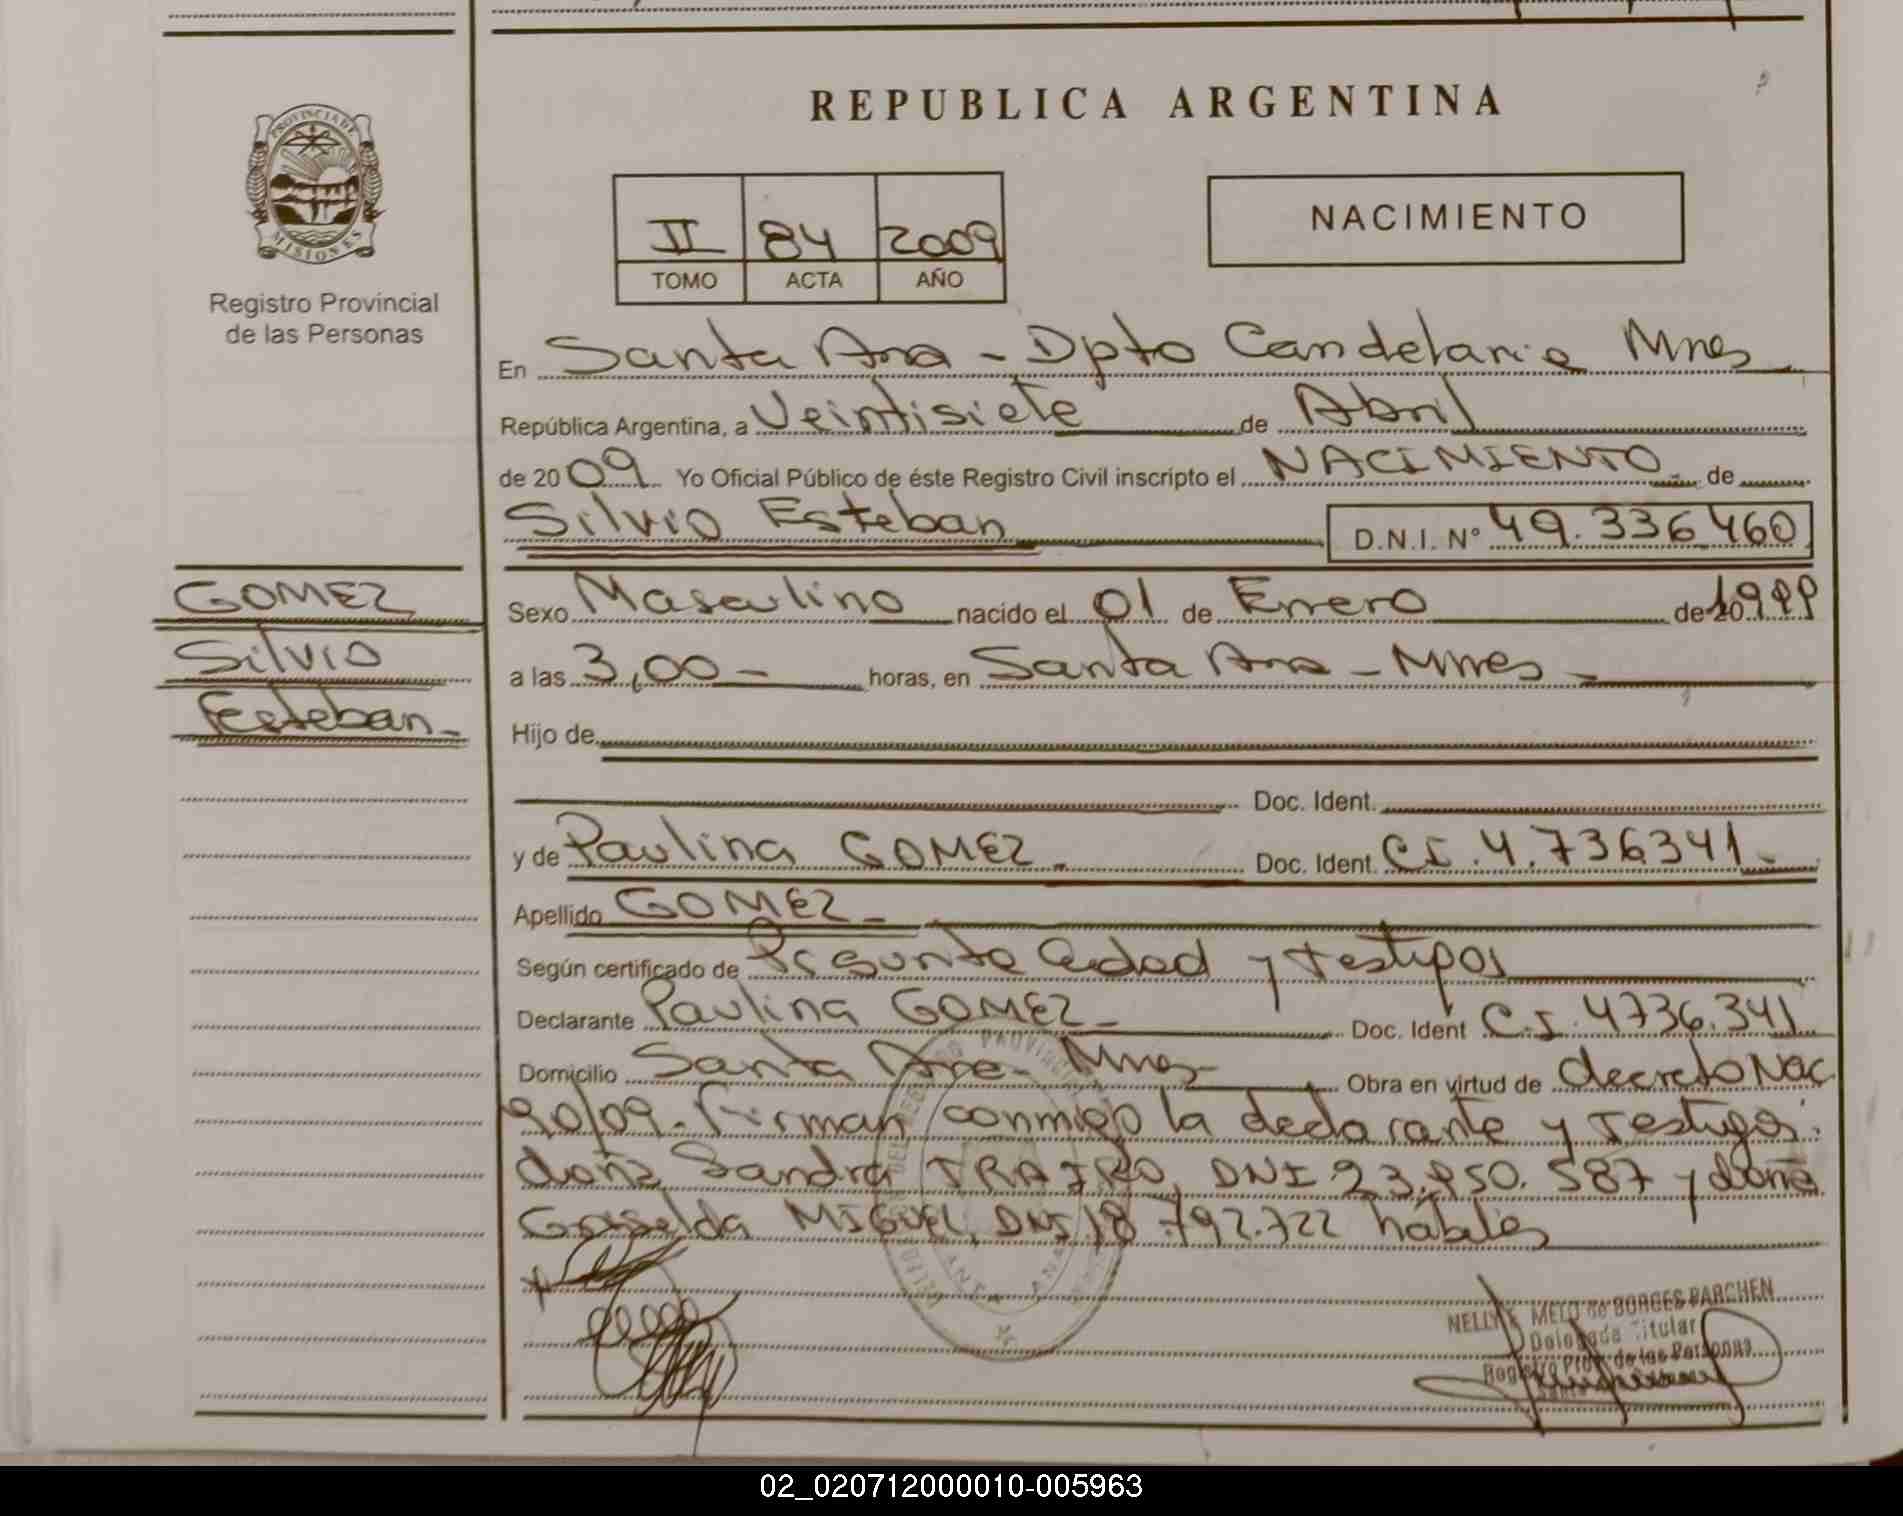 REPUBLICA ARGENTINA
PROVINCIA DE
MISIONES
Registro Provincial
de las Personas
II 84 2009
TOMO ACTA AÑO
NACIMIENTO
En Santa Ana - Dpto Candelaria Mnes
República Argentina, a Veintisiete de Abril
de 2009 Yo Oficial Público de éste Registro Civil inscripto el NACIMIENTO de
Silvio Esteban D.N.I. Nº 49.336460
GOMEZ
Silvio
Esteban
Sexo Masculino nacido el 01 de Enero de 1999
a las 3,00 - horas, en Santa Ana - Mnes -
Hijo de
Doc. Ident.
y de Paulina GOMEZ - Doc. Ident. CI. 4.736341 -
Apellido GOMEZ -
Según certificado de Presunta Edad y testigos
Declarante Paulina GOMEZ - Doc. Ident C.I. 4736.341
Domicilio Santa Ana - Mnes - Obra en virtud de decreto Nac
90/09. Firman conmigo la declarante y testigos:
doña Sandra DNI 23.950.587 y doña
Griselda MIGUEL, DNI 18.792.722 hábiles
NELLY MELO de BORGES PARCHEN
Delegada Titular
Registro Prov. de las Personas
02_020712000010-005963